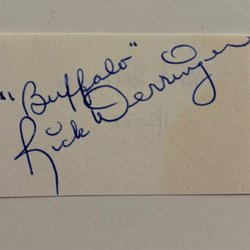 "Buffalo"
Rick Derringer